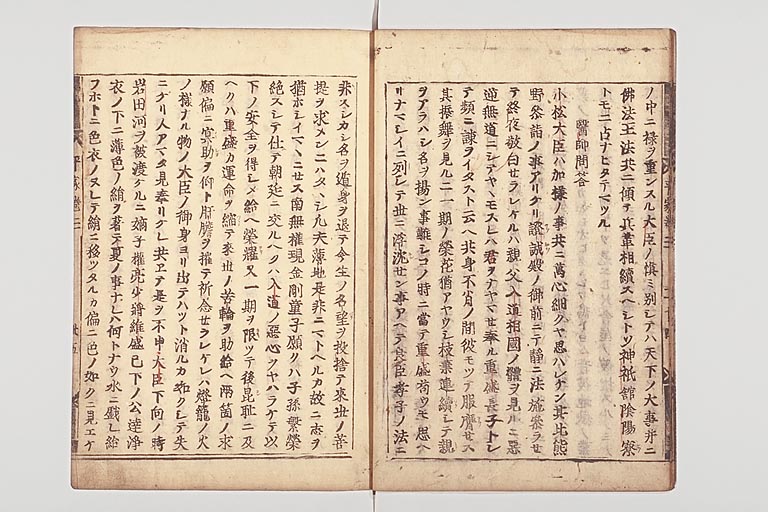 ノ中ニ禄ヲ重ンスル大臣ノ慎ミ別シテハ天下ノ大事并ニ
佛法王法共ニ傾キ兵革相續スヘシトソ神祇舘陰陽寮
トモニ占ナヒタテマツル
醫師問答
小松大臣ハ加樣ノ事共ニ萬心細クヤ思ハレケン其比熊
野参詣ノ事アリケリ證誠殿ノ御前ニテ静ニ法施参ラセ
テ終夜敬白セラレケルハ親父入道相國ノ體ヲ見ルニ惡
逆無道ニシテヤヽモスレハ君ヲナヤマせ奉ル重盛長子トシ
テ頻ニ諫ヲイタストイヘ共身不肖ノ間彼モツテ服膺せス
其振舞ヲ見ルニ一期ノ榮花猶アヤウシ枝葉連續シテ親
ヲアラハシ名ヲ揚ン事難シコノ時ニ當テ重盛苟ウモ思ヘ
リナマシイニ列シテ世ニ浮沈せン事アヘテ良臣孝子ノ法ニ
非スシカシ名ヲ遁身ヲ退テ今生ノ名望ヲ投捨テ來世ノ菩
提ヲ求メンニハタヽシ凡夫薄地是非ニマトヘルカ故ニ志ヲ
猶ホシイマヽニせス南無權現金剛童子願クハ子孫繁榮
絶スシテ仕テ朝廷ニ交ルヘクハ入道ノ惡心ヲヤハラケテ以
下ノ安全ヲ得シメ給ヘ榮耀又一期ヲ限ツテ後昆耻ニ及
ヘクハ重盛カ運命ヲ縮テ來世ノ苦輪ヲ助給ヘ兩箇ノ求
願偏ニ冥助ヲ仰ト肝膽ヲ摧テ祈念せラレケレハ燈籠ノ火
ノ樣ナル物ノ大臣ノ御身ヨリ出テハツト消ルカ如クシテ失
ニケリ人アマタ見奉リケレ共恐テ是ヲ不申大臣下向ノ時
岩田河ヲ被渡ケルニ嫡子權亮少將維盛已下ノ公達浄
衣ノ下ニ薄色ノ絹ヲ著テ夏ノ事ナレハ何トナウ水ニ戯レ給
フホトニ色衣ノヌレテ絹ニ移ツタルカ偏ニ色ノ如クニ見エケ